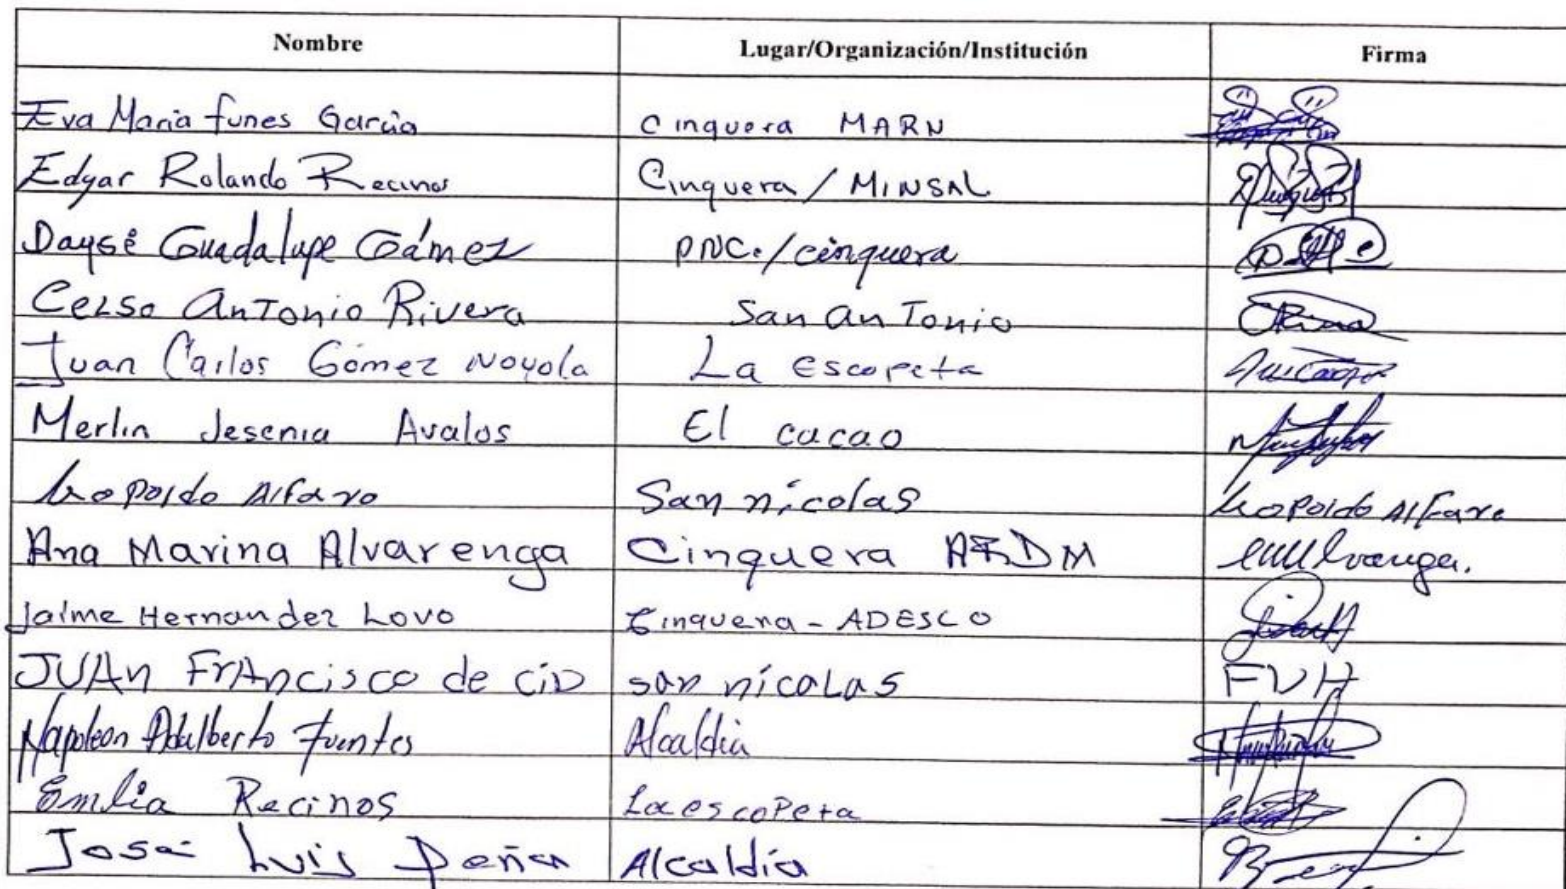 Nombre Lugar/Organización/Institución Firma
Eva Maria Funes Garcia Cinquera MARN
Edgar Rolando Recinos Cinquera / MINSAL
Daysé Guadalupe Gámez PNC./cinquera
Celso Antonio Rivera San Antonio
Juan Carlos Gómez Noyola La Escopeta
Merlin Jesenia Avalos El cacao
Leopoldo Alfaro San nícolas Leopoldo Alfaro
Ana Marina Alvarenga Cinquera ARDM
Jaime Hernandez Lovo Cinquera - ADESCO
JUAn FrAncisco de CiD san nícoLas FVH
Napoleon Adalberto Fuentes Alcaldia
Emilia Recinos La escopeta
José Luis Peña Alcaldía